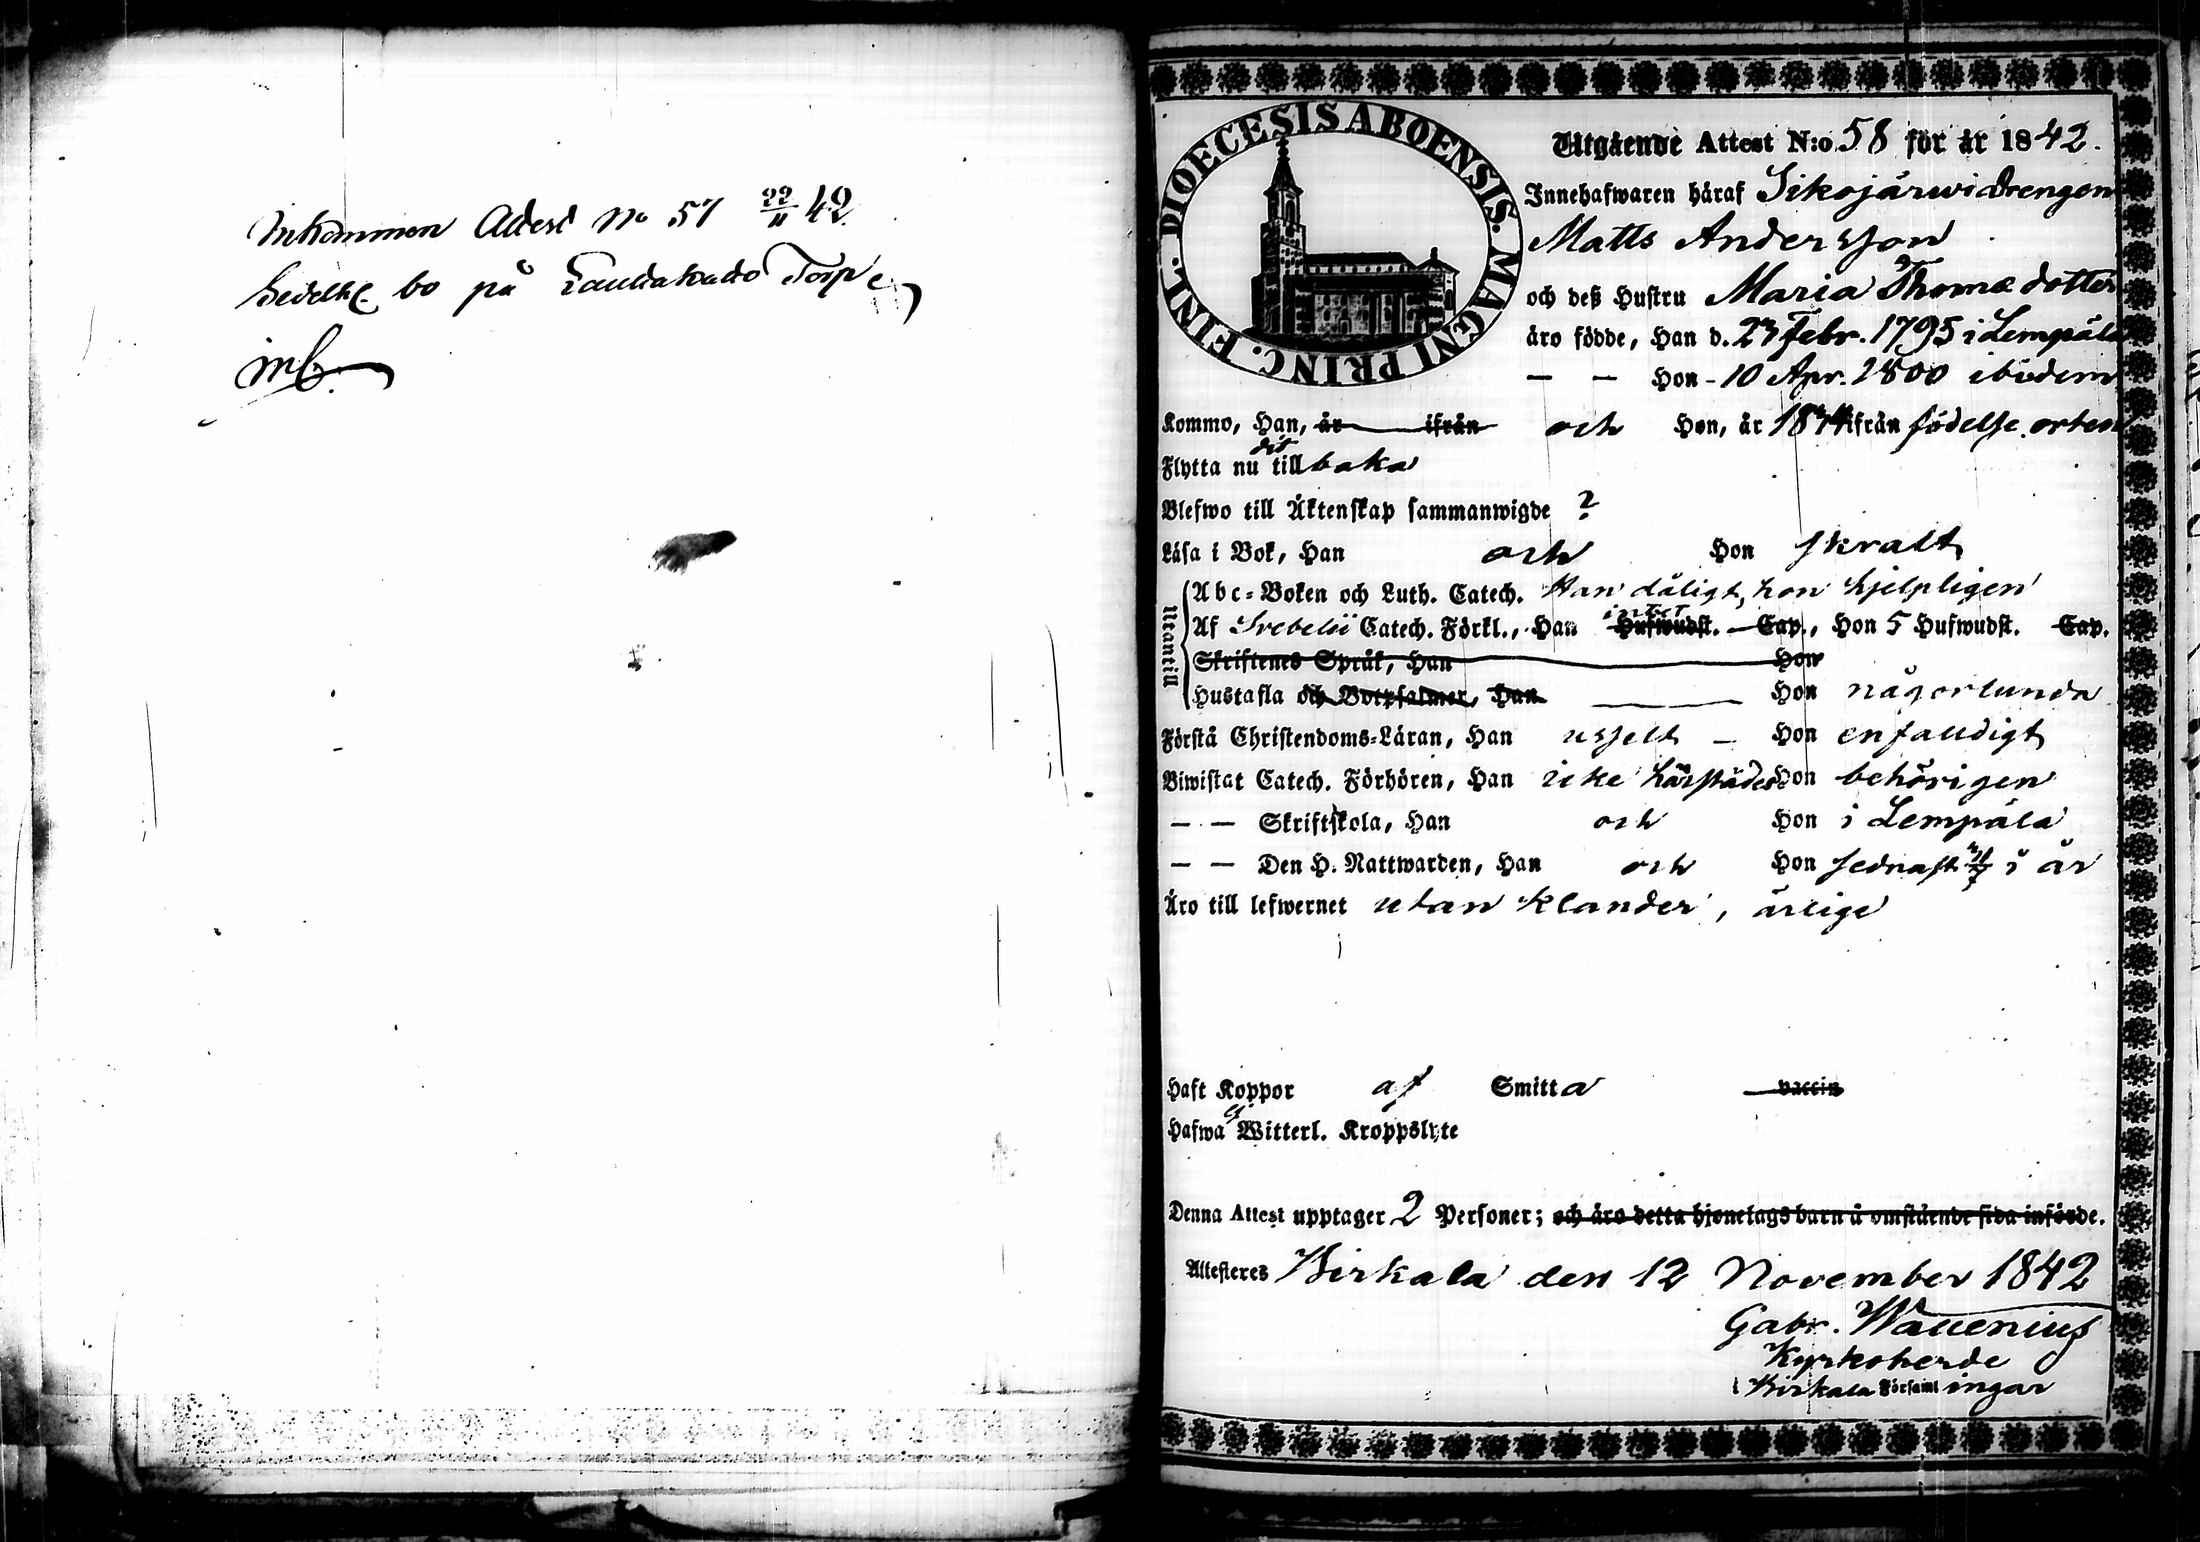 Inkommen Attest No 57 22/11 42.
bo på Torp
DIOECESIS ABOENSIS. MAGNI PRINC. FINL.
Utgående Attest N:o 58 för år 1842.
Innehafwaren häraf Sikojärwi Drengen
Matts Andersson
och deß Hustru Maria Thomædotter
äro födde, Han d. 27 Febr. 1795 i Lempäla
— — Hon - 10 Apr. 1800 ibidem
Kommo, Han, år ifrån och Hon, år ifrån födelse orten
Flytta nu dit tillbaka
Blefwo till Äktenskap sammanwigde ?
Läsa i Bok, Han och Hon skralt
Utantill
Abc-Boken och Luth. Catech. Han dåligt, hon hjelpligen
Af Svebelii Catech. Förkl., Han intet Hufwudst. Cap., Hon 5 Hufwudst. Cap.
Skriftenes Språk, Han Hon
Hustafla och Botpsalmer, Han — Hon någorlunda
Förstå Christendoms-Läran, Han uselt — Hon enfaldigt
Biwistat Catech. Förhören, Han icke härstädes Hon behörigen
— — Skriftskola, Han och Hon i Lempäla
— — Den H. Nattwarden, Han och Hon sednast i år
Äro till lefwernet utan klander, ärlige
Haft Koppor af Smitta vaccin
Hafwa ej Witterl. Kroppslyte
Denna Attest upptager 2 Personer; och äro detta hjonelags barn å omstående sida införde.
Attesteres Birkala den 12 November 1842
Gabr. Wallenius
Kyrkoherde
i Birkala Församlingar